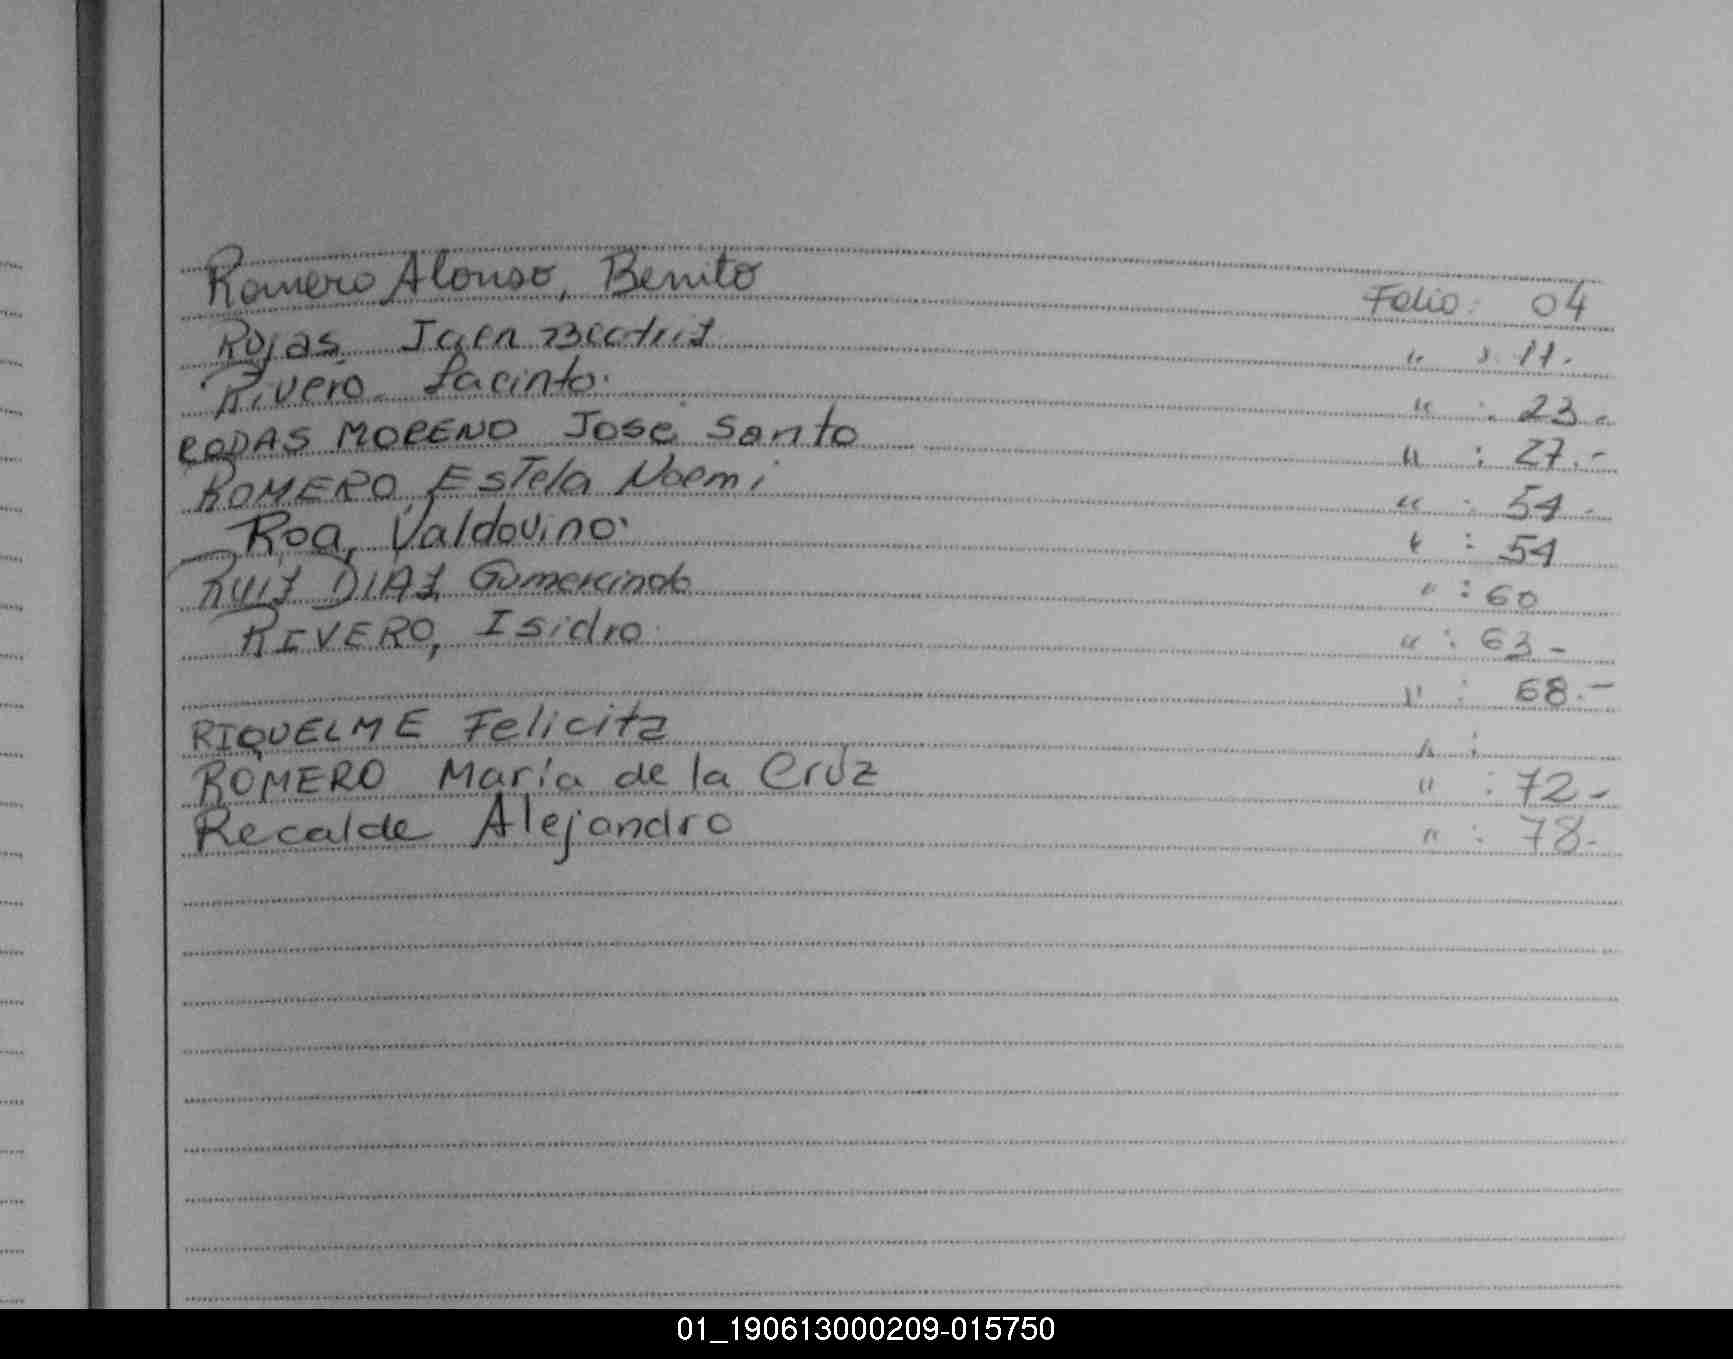 Romero Alonso, Benito Folio: 04
Rojas Jaen Beatriz " : 11.
Rivero Jacinto. " : 23.-
RODAS MORENO José Santo " : 27.-
ROMERO, Estela Noemi " : 54.-
Roa, Valdovino. " : 54
RUIZ DIAZ Gumercindo " : 60
RIVERO, Isidro. " : 63-
" : 68.-
RIQUELME Felicita " :
ROMERO María de la Cruz " : 72-
Recalde Alejandro " : 78-
01_190613000209-015750